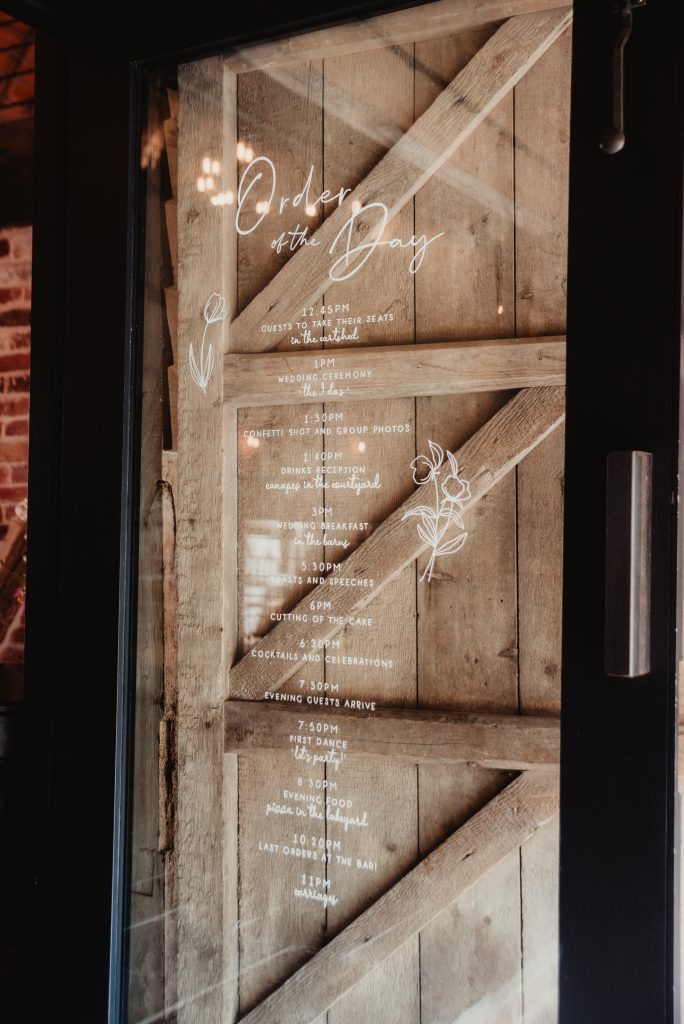 Order
of the Day
12:45PM
GUESTS TO TAKE THEIR SEATS
in the cartshed
1PM
WEDDING CEREMONY
'the I dos'
1:30PM
CONFETTI SHOT AND GROUP PHOTOS
1:40PM
DRINKS RECEPTION
canapes in the courtyard
3PM
WEDDING BREAKFAST
in the barns
5:30PM
TOASTS AND SPEECHES
6PM
CUTTING OF THE CAKE
6:30PM
COCKTAILS AND CELEBRATIONS
7:30PM
EVENING GUESTS ARRIVE
7:50PM
FIRST DANCE
'let's party!'
8:30PM
EVENING FOOD
pizza in the
10:20PM
LAST ORDERS AT THE BAR!
11PM
carriages